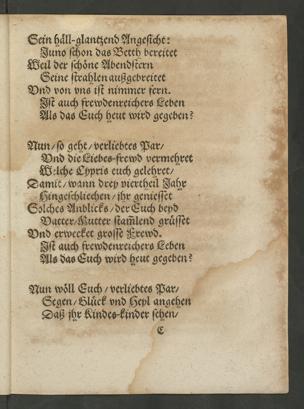 Sein häll-glantzend Angesicht:
Juno schon das Betth bereitet
Weil der schöne Abendstern
Seine strahlen außgebreitet
Vnd von vns ist nimmer fern.
Ist auch frewdenreichers Leben
Als das Euch heut wird gegeben?
Nun/ so geht/ verliebtes Par/
Vnd die Liebes-frewd vermehret
Welche Cypris euch gelehret/
Damit/ wann drey viertheil Jahr
Hingeschliechen/ jhr geniesset
Solches Anblicks/ der Euch beyd
Vatter/ Mutter stam̃lend grüsset
Vnd erwecket grosse Frewd.
Ist auch frewdenreichers Leben
Als das Euch wird heut gegeben?
Nun wöll Euch/ verliebtes Par/
Segen/ Glück vnd Heyl angehen
Daß jhr Kindes-kinder sehen/
C